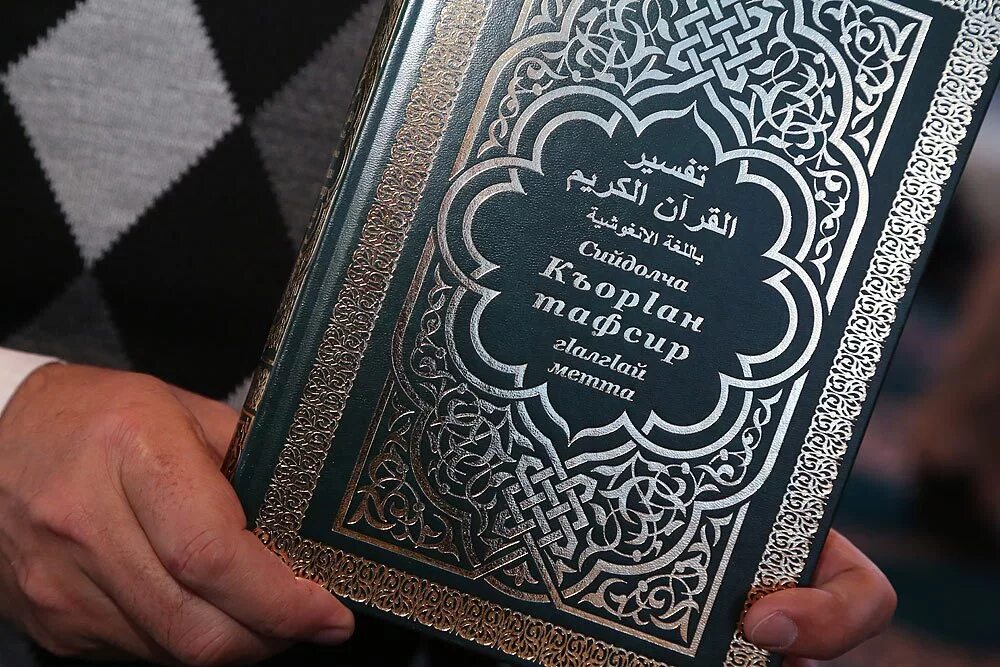 تفسير
القرآن الكريم
باللغة الانغوشية
Сийдолча
КъорӀан
тафсир
гӀалгӀай
метта